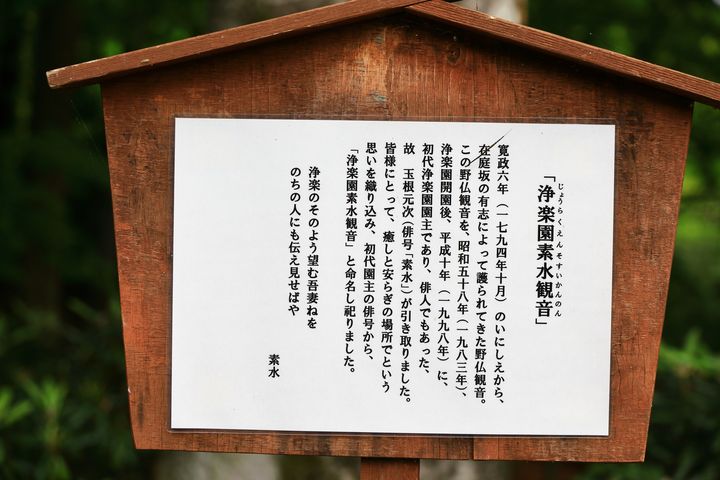 「浄楽園素水観音」
じょうらくえんそすいかんのん
寛政六年（一七九四年十月）のいにしえから、
在庭坂の有志によって護られてきた野仏観音。
この野仏観音を、昭和五十八年（一九八三年）、
浄楽園開園後、平成十年（一九九八年）に、
初代浄楽園園主であり、俳人でもあった、
故　玉根元次（俳号「素水」）が引き取りました。
皆様にとって、癒しと安らぎの場所でという
思いを織り込み、初代園主の俳号から、
「浄楽園素水観音」と命名し祀りました。
浄楽のそのよう望む吾妻ねを
のちの人にも伝え見せばや
素水